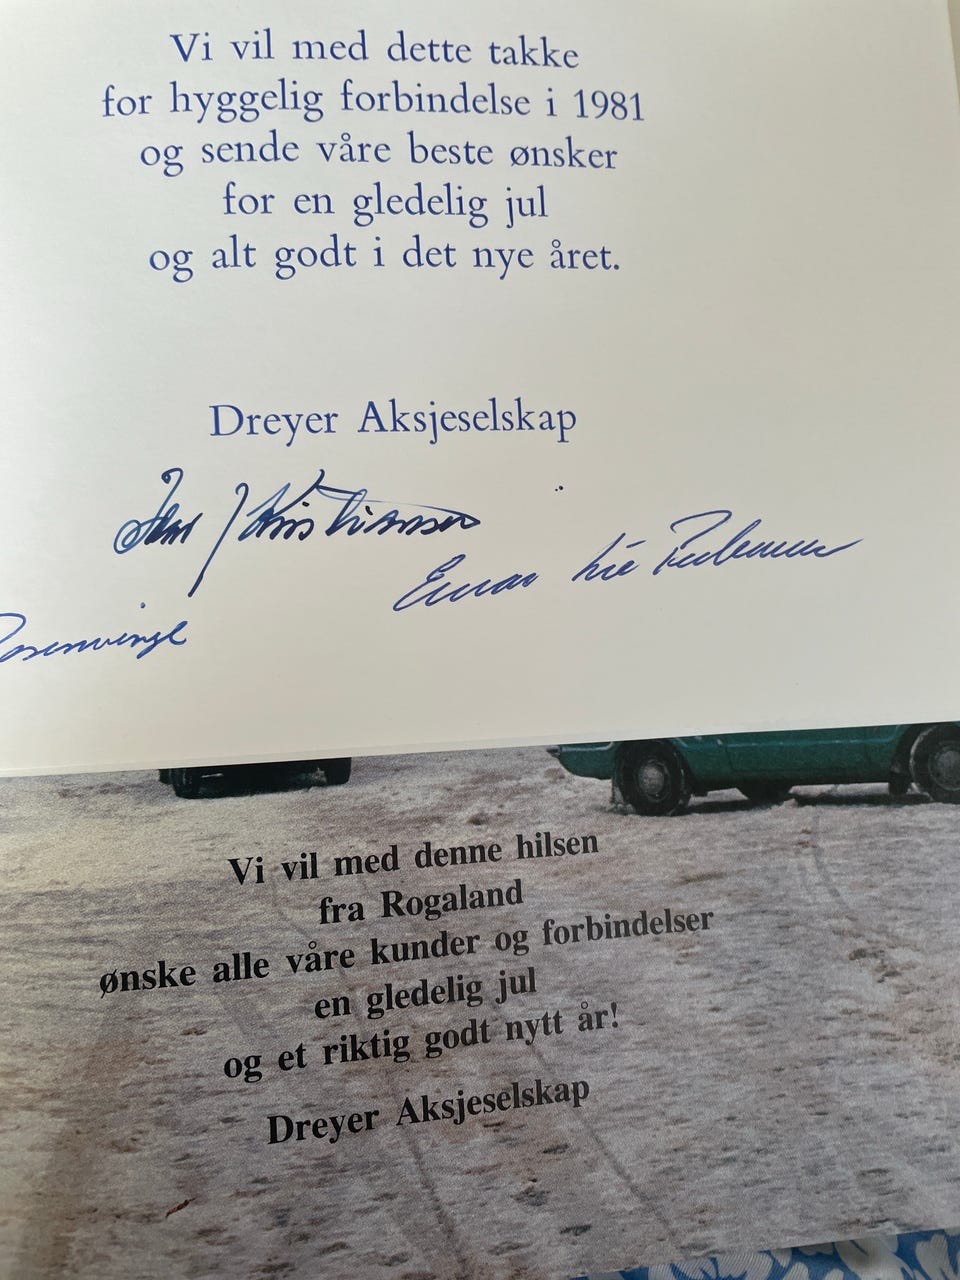 Vi vil med dette takke
for hyggelig forbindelse i 1981
og sende våre beste ønsker
for en gledelig jul
og alt godt i det nye året.
Dreyer Aksjeselskap
Kristiansen
Lie
Rosenvinge
Vi vil med denne hilsen
fra Rogaland
ønske alle våre kunder og forbindelser
en gledelig jul
og et riktig godt nytt år!
Dreyer Aksjeselskap